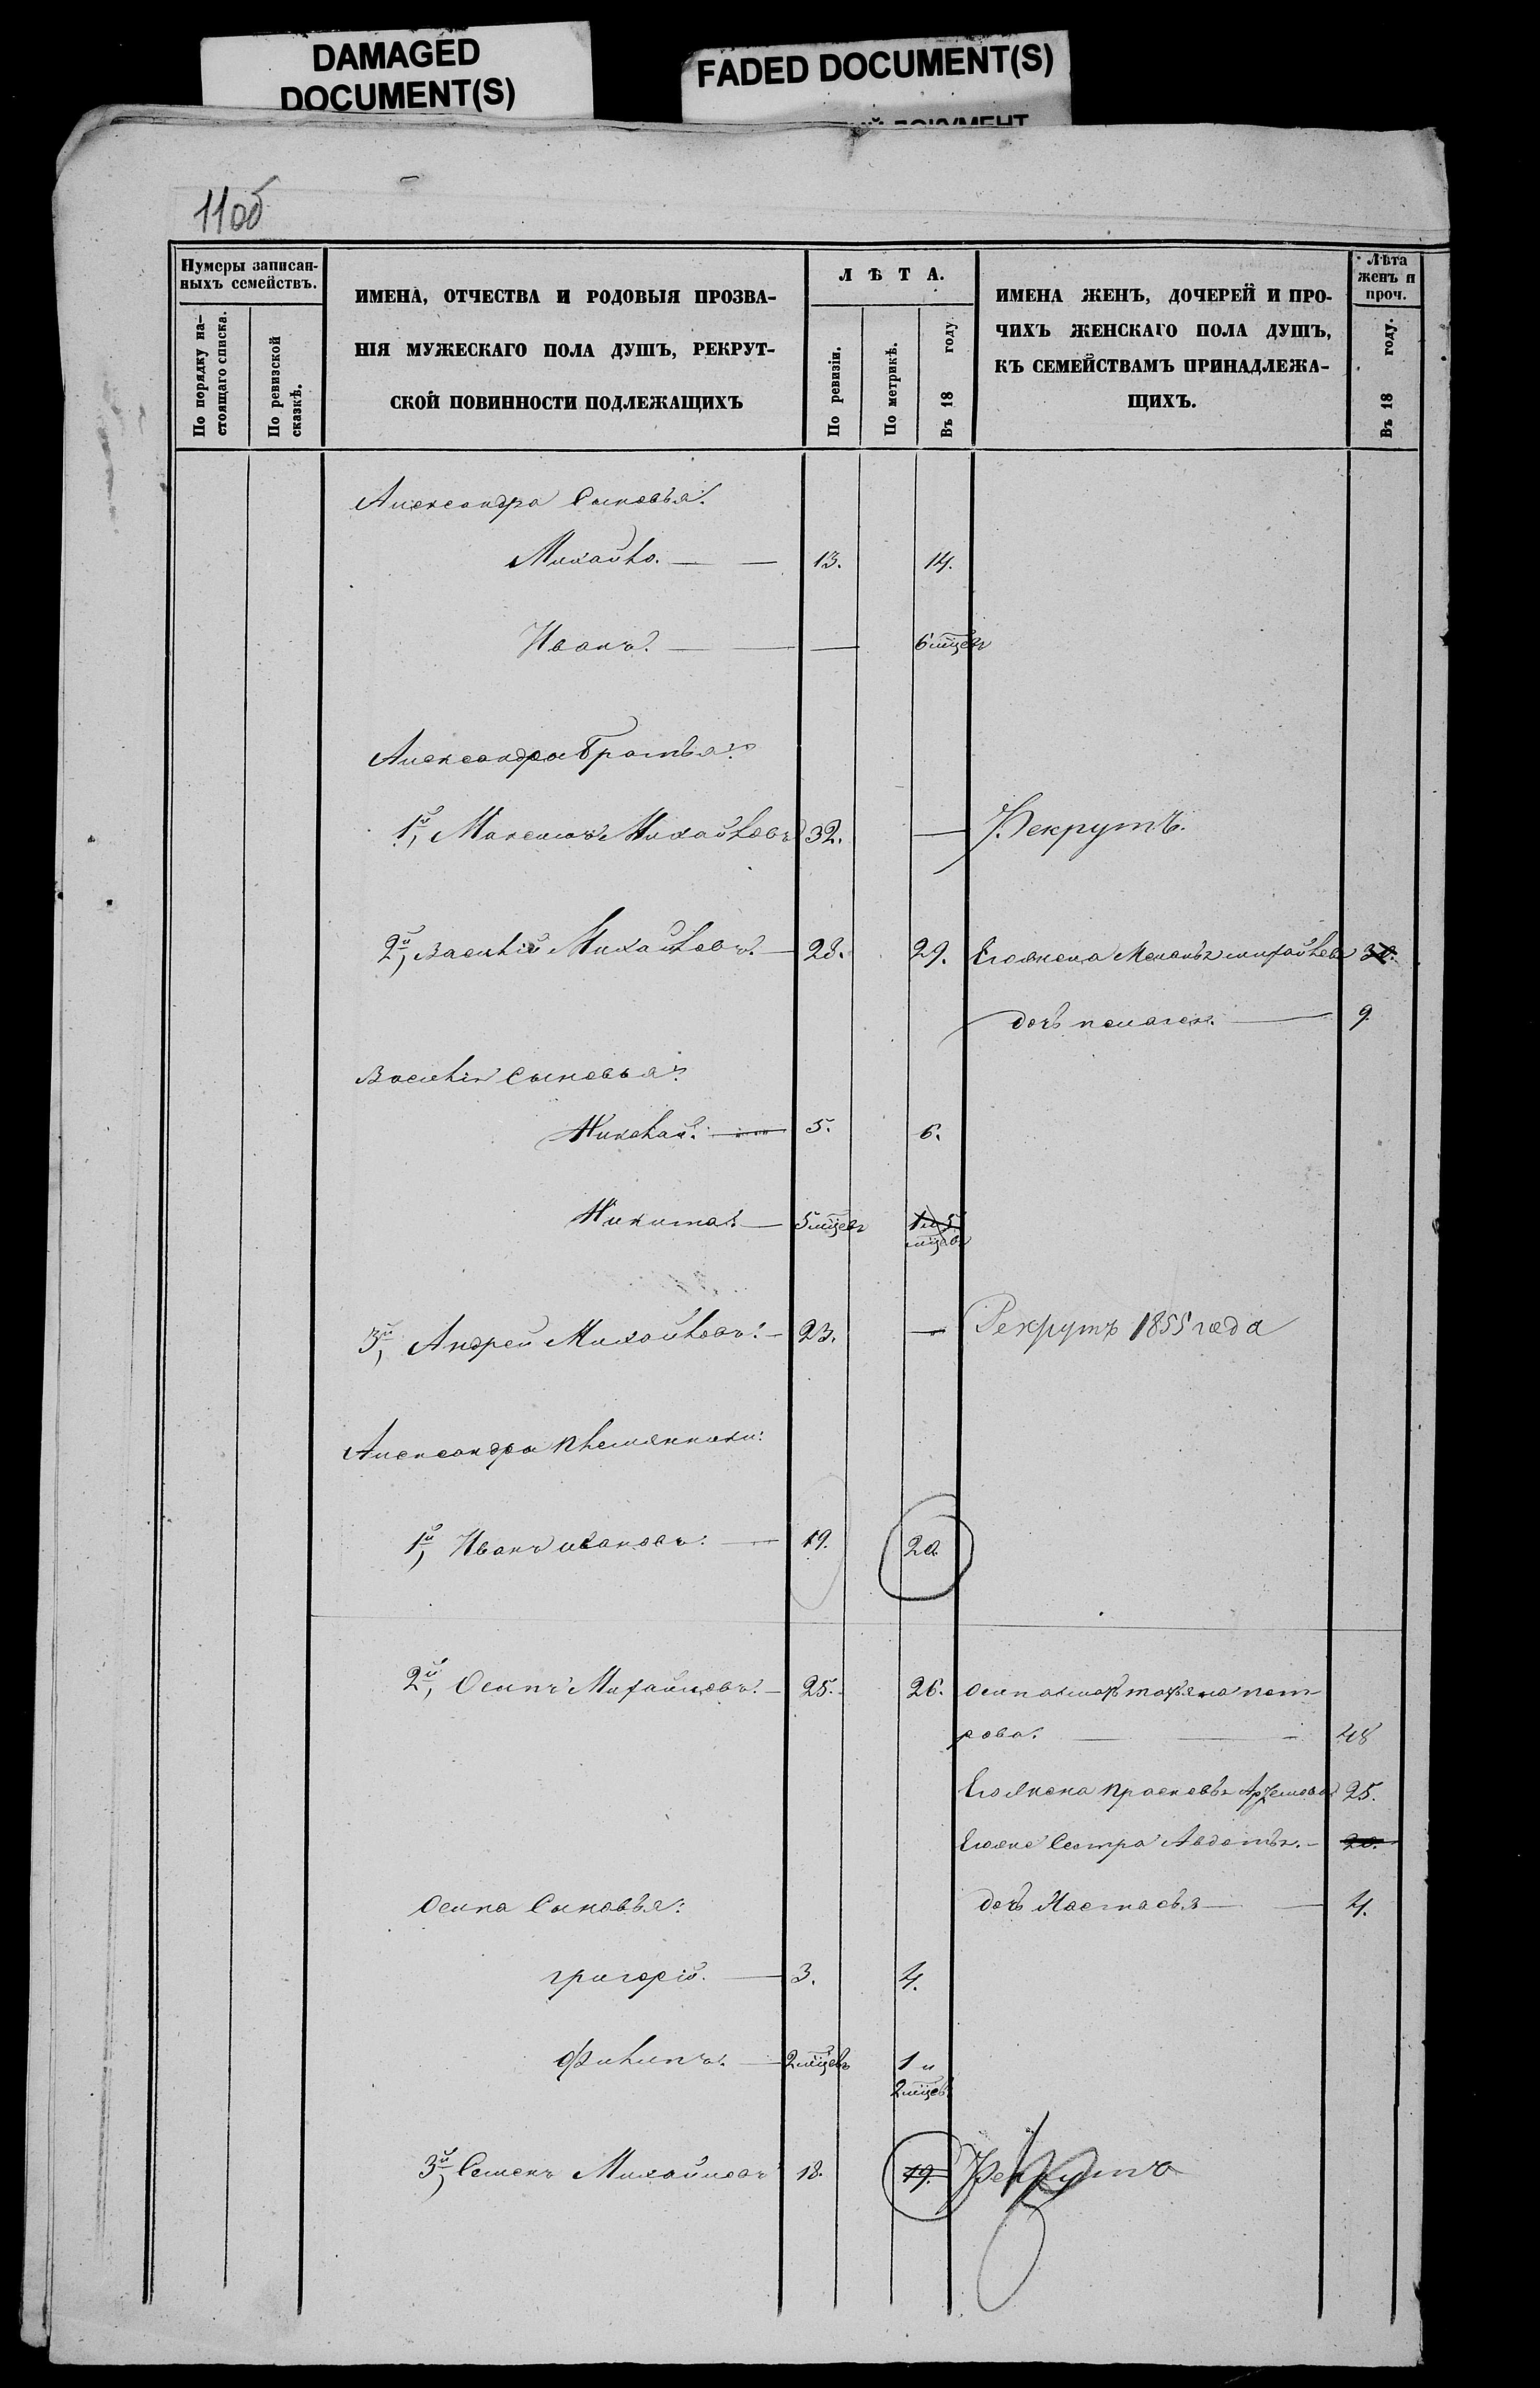 DAMAGED
DOCUMENT(S)
FADED DOCUMENT(S)
ДОКУМЕНТ
11об
Нумеры записан-
ныхъ семействъ.
По порядку на-
стоящаго списка.
По ревизской
сказкѣ.
ИМЕНА, ОТЧЕСТВА И РОДОВЫЯ ПРОЗВА-
НІЯ МУЖЕСКАГО ПОЛА ДУШЪ, РЕКРУТ-
СКОЙ ПОВИННОСТИ ПОДЛЕЖАЩИХЪ
ЛѢТА.
По ревизіи.
По метрикѣ.
Въ 18 году
ИМЕНА ЖЕНЪ, ДОЧЕРЕЙ И ПРО-
ЧИХЪ ЖЕНСКАГО ПОЛА ДУШЪ,
КЪ СЕМЕЙСТВАМЪ ПРИНАДЛЕЖА-
ЩИХЪ.
Лѣта
женъ и
проч.
Въ 18 году.
Александра Сыновья:
Михайло. — — 13. 14.
Иванъ. — — — 6 мцевъ
Александра Братья:
1й, Максимъ Михайловъ 32. — Рекрутъ.
2й, Василій Михайловъ. — 28. 29. Его жена Меланья михайлова 30.
дочь пелагея. — 9
Василія Сыновья:
Николай. — 5. 6.
Никита. — 5 мцевъ 1 и 5
мцевъ
3й, Андрей Михайловъ. — 23. — Рекрутъ 1855 года
Александра племянники:
1й, Иванъ ивановъ. — 19. 20.
2й, Осипъ Михайловъ. — 25. 26. осипа мать татьяна пет-
рова. — — 48
Его жена прасковья Артемова 25.
Его же Сестра Авдотья. — 20.
Осипа Сыновья: дочь Настасья — — 4.
григорій. — 3. 4.
филипъ. — 2 мцевъ 1 и
2 мцев.
3й, Семенъ Михайловъ 18. 19. Рекрутъ